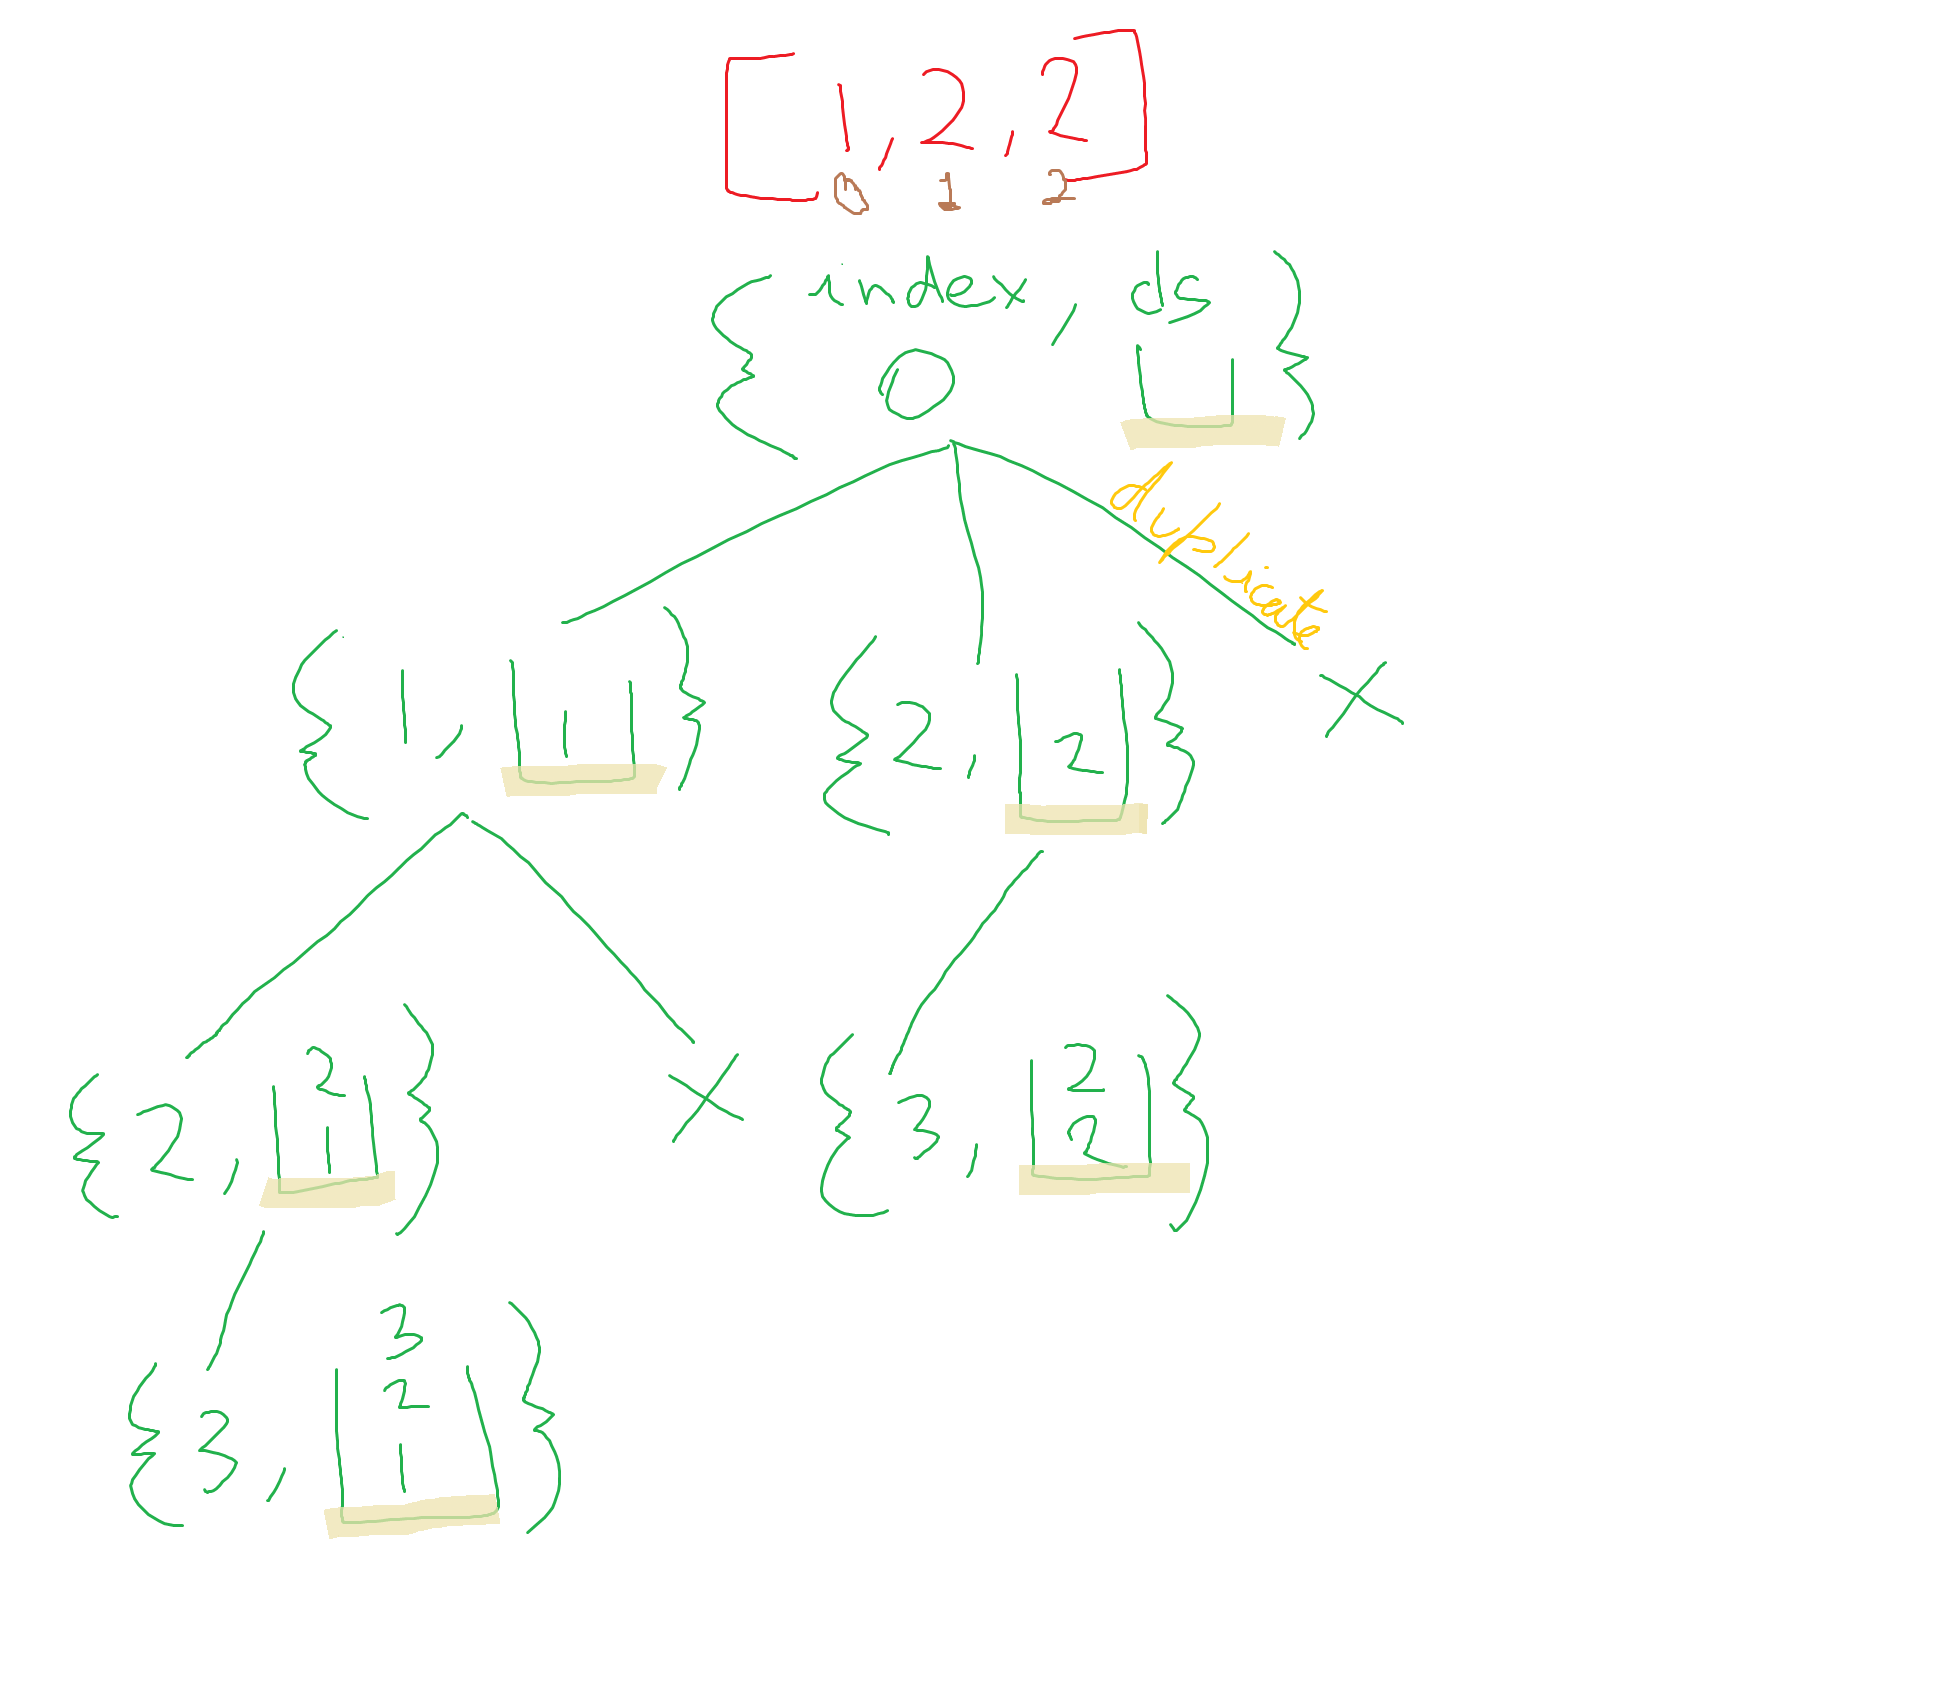 [1, 2, 2]
0 1 2
{ index, ds
0 }
duplicate
{ 1, 1 } { 2, 2 } X
2 2
{ 2, 1 } X { 3, 2 }
3
2
{ 3, 1 }